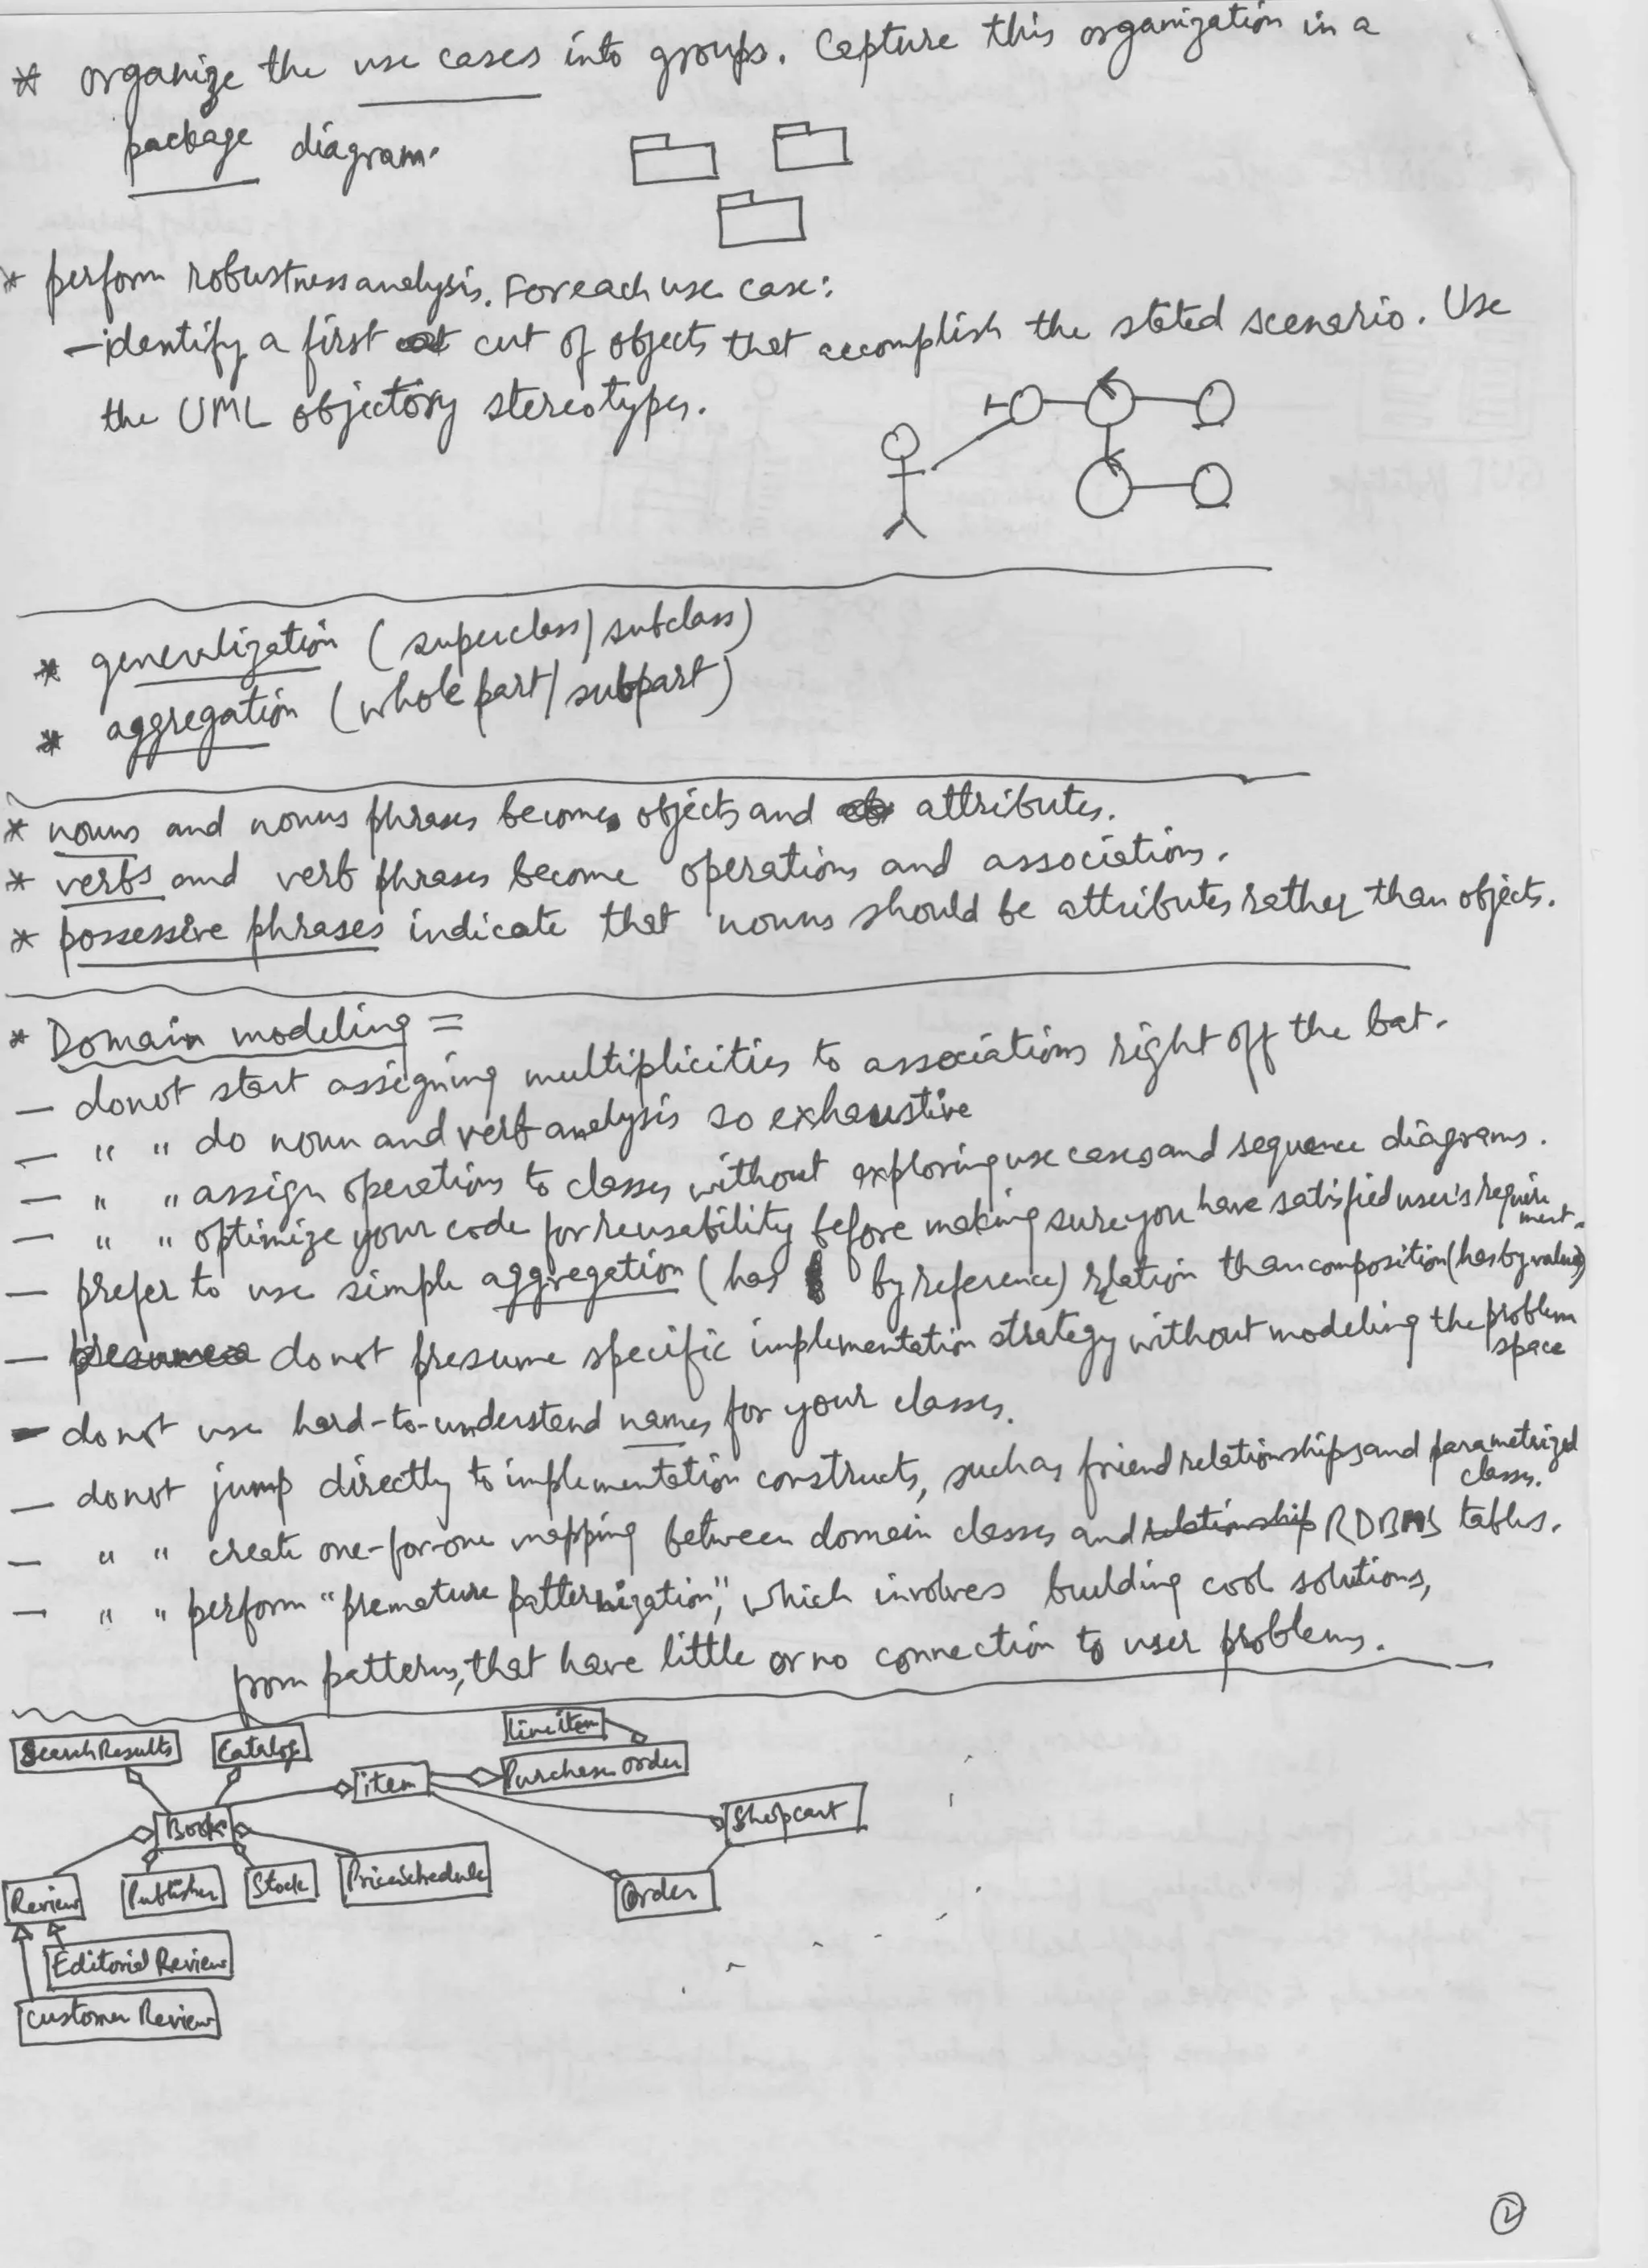 * organize the use cases into groups. Capture this organization in a
package diagram.
* perform robustness analysis. For each use case:
- identify a first cut of objects that accomplish the stated scenario. Use
the UML objectory stereotypes.
* generalization (superclass/subclass)
* aggregation (whole part/subpart)
* nouns and nouns phrases become objects and attributes.
* verbs and verb phrases become operations and associations.
* possessive phrases indicate that nouns should be attributes rather than objects.
* Domain modeling =
- donot start assigning multiplicities to associations right off the bat.
- " " do noun and verb analysis so exhaustive
- " " assign operations to classes without exploring use cases and sequence diagrams.
- " " optimize your code for reusability before making sure you have satisfied user's requirement.
- prefer to use simple aggregation (has by reference) relation than composition (has by value)
- presumes do not presume specific implementation strategy without modeling the problem space
- do not use hard-to-understand names for your classes.
- donot jump directly to implementation constructs, such as friend relationships and parametrized classes.
- " " create one-for-one mapping between domain classes and relationship RDBMS tables.
- " " perform "premature patternization", which involves building cool solutions,
from patterns, that have little or no connection to user problems.
SearchResults
Catalog
line item
item
Purchase order
Book
Shopcart
Review
Publisher
Stock
PriceSchedule
Order
Editorial Review
Customer Review
2